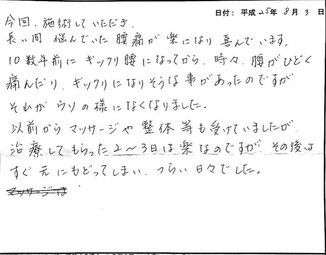 日付：平成25年8月3日
今回、施術していただき、
長い間悩んでいた腰痛が楽になり喜んでいます。
10数年前にギックリ腰になってから、時々、腰がひどく
痛んだり、ギックリになりそうな事があったのですが
それがウソの様になくなりました。
以前からマッサージや整体等も受けていましたが、
治療してもらった2〜3日は楽なのですが、その後は
すぐ元にもどってしまい、つらい日々でした。
マッサージは